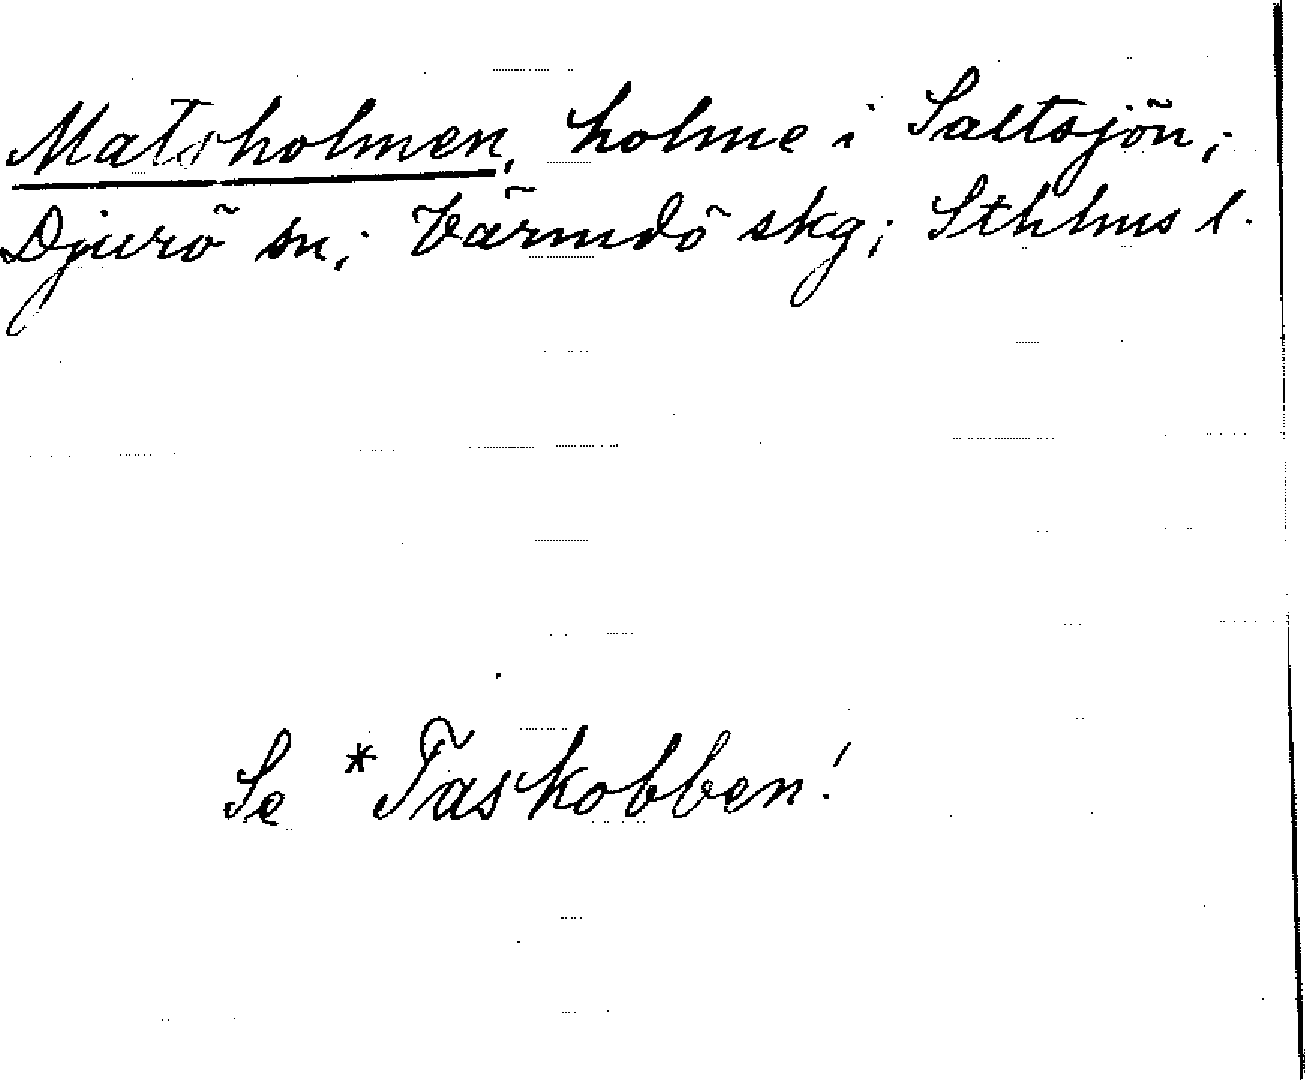 Matsholmen, holme i Saltsjön;
Djurö sn; Värmdö skg; Sthlms l.
Se *Taskobben!